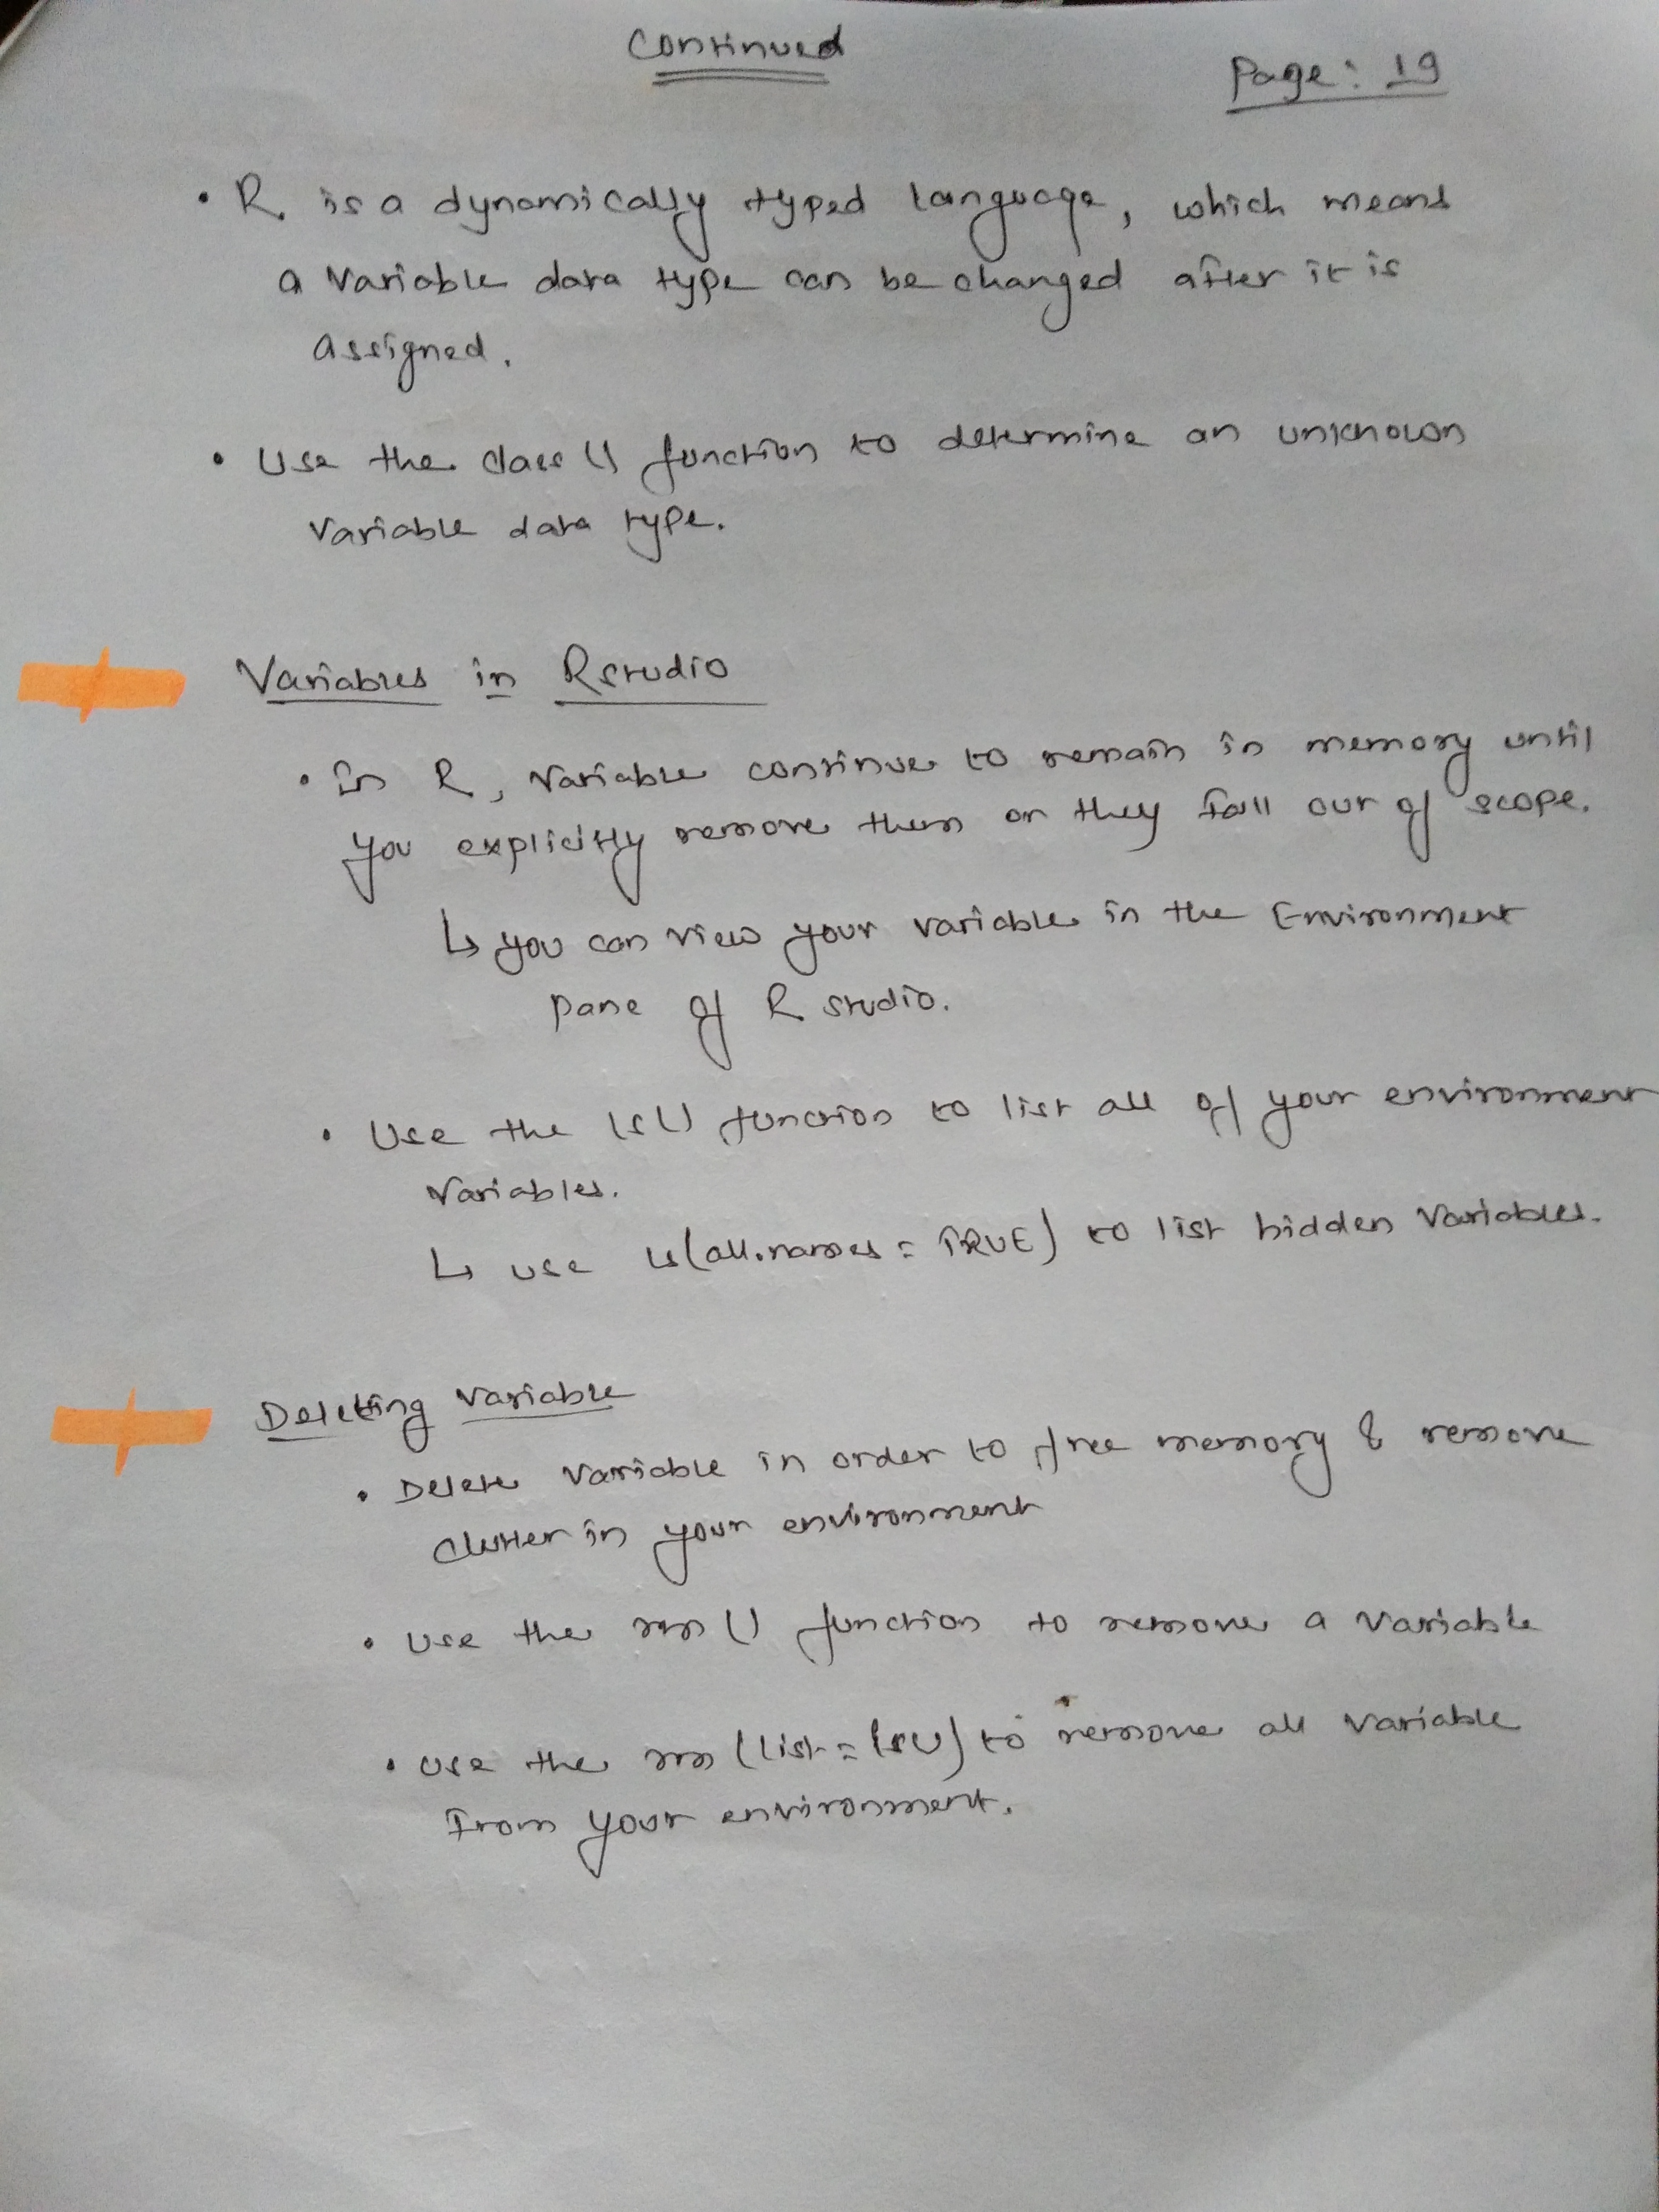 Continued
Page: 19
• R is a dynamically typed language, which means
a variable data type can be changed after it is
assigned.
• Use the class () function to determine an unknown
variable data type.
Variables in Rstudio
• In R, variable continue to remain in memory until
you explicitly remove them or they fall out of scope.
↳ you can view your variable in the Environment
pane of R studio.
• Use the ls() function to list all of your environment
variables.
↳ use ls(all.names = TRUE) to list hidden variables.
Deleting variable
• Delete variable in order to free memory & remove
clutter in your environment
• use the rm () function to remove a variable
• use the rm (list = ls()) to remove all variable
from your environment.